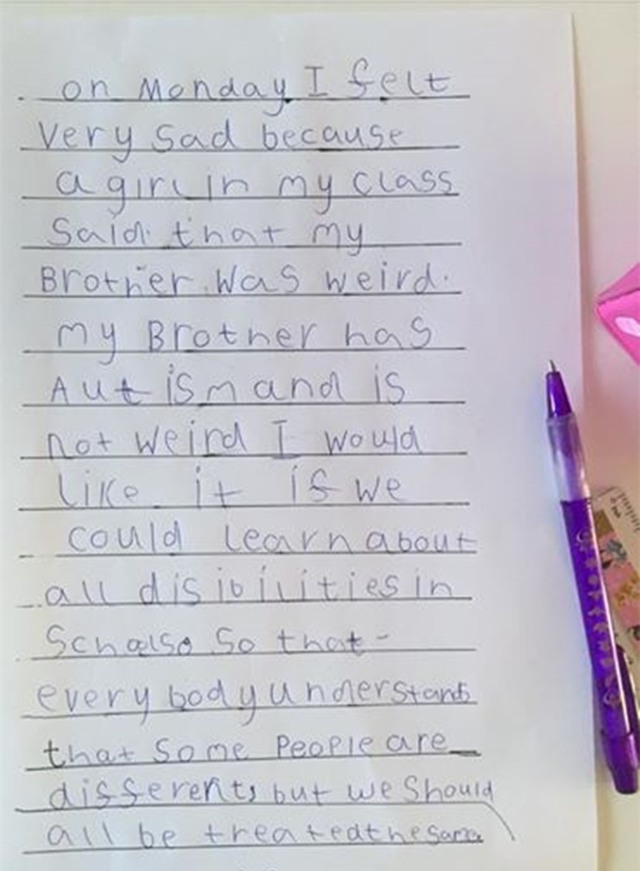 on Monday I felt
very sad because
a girl in my class
Said that my
Brother Was weird.
my Brother has
Autism and is
not weird I would
like it if we
could learn about
all disibilities in
So that
everybody understands
that some People are
differents but we Should
all be treated the same